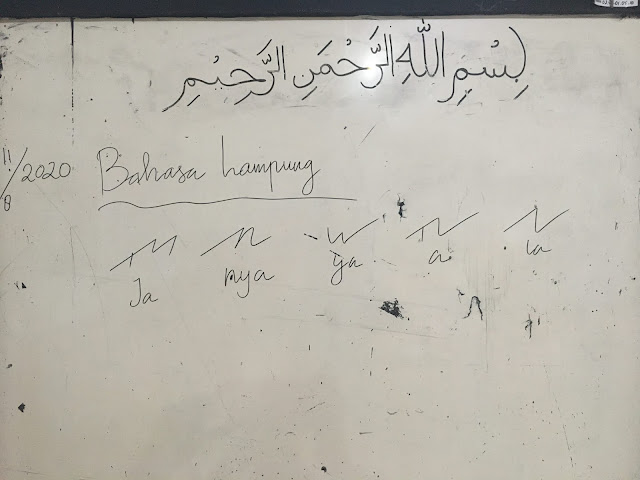 بِسْمِ اللَّهِ الرَّحْمَنِ الرَّحِيْمِ
11/8 2020 Bahasa Lampung
Ja nya ya a la